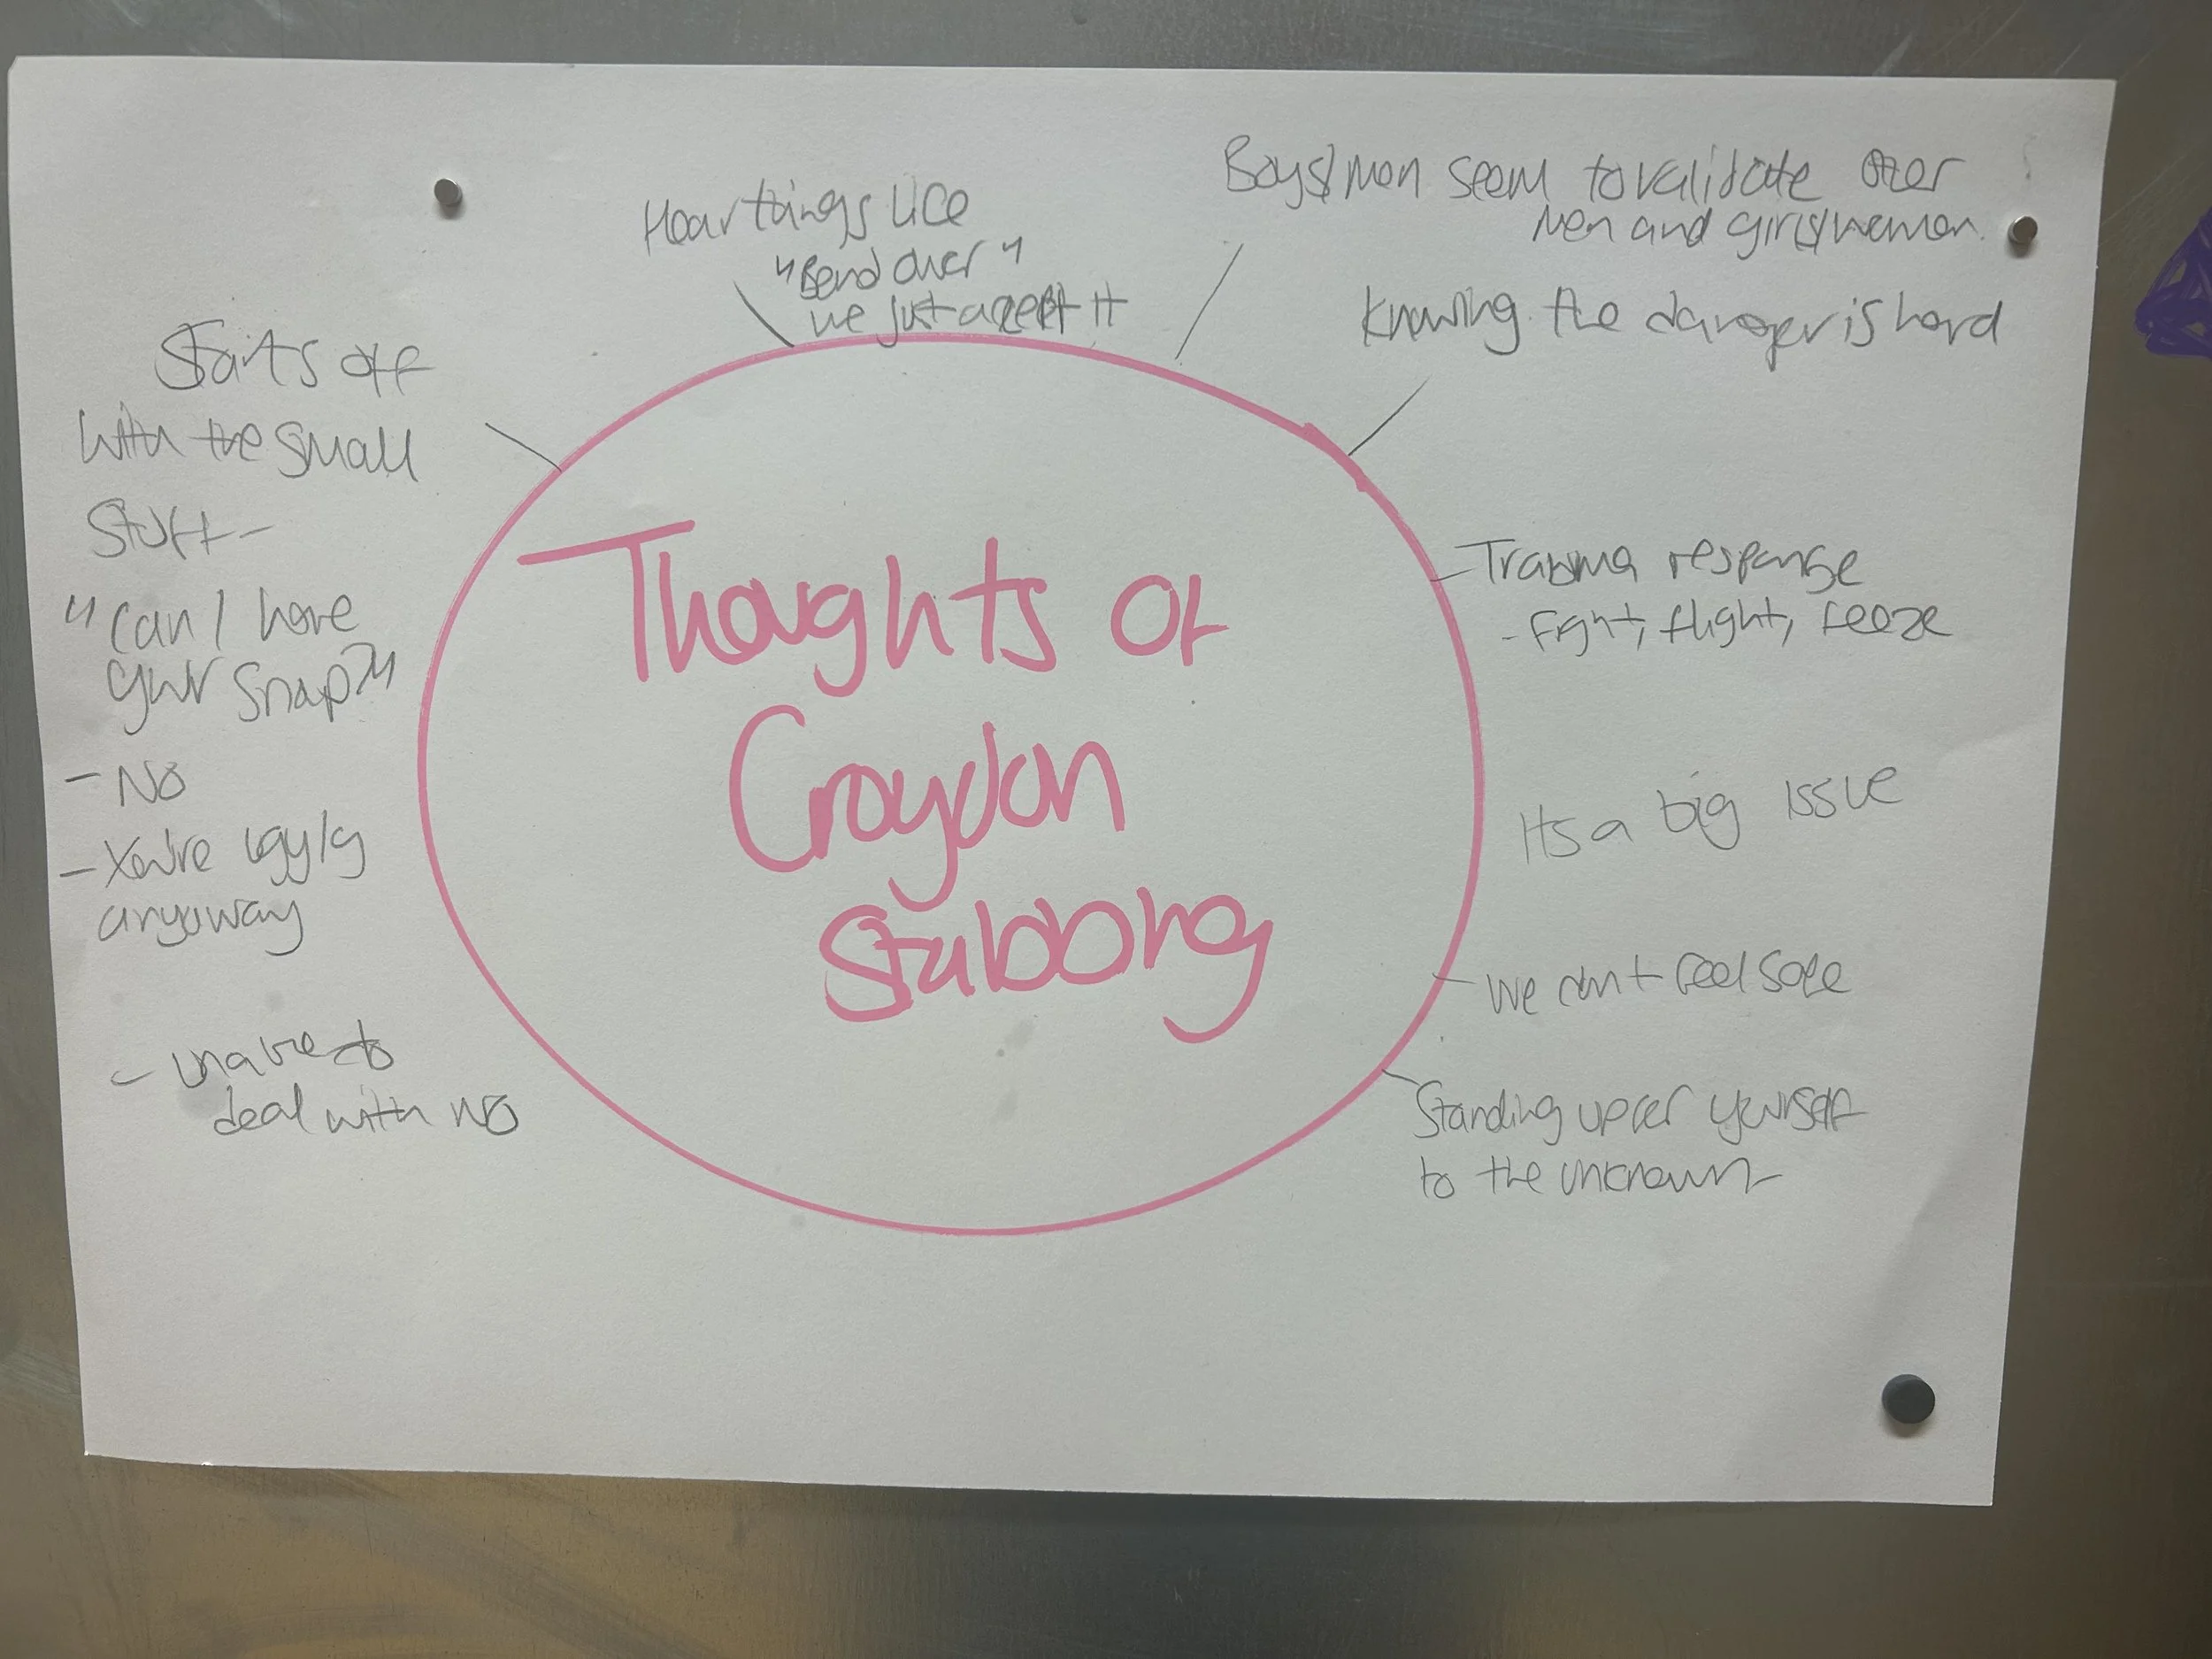 Thoughts of
Croydon
Stabbing
Hear things like
"Bend over"
we just accept it
Boys/men seem to validate other
men and girls/women.
Knowing the danger is hard
Trauma response
- Fight, flight, feeze
Its a big issue
- We don't feel safe
Standing up for yourself
to the unknown
Starts off
with the small
stuff -
"Can I have
your snap?"
- No
- You're ugyly
anyway
- unable to
deal with no